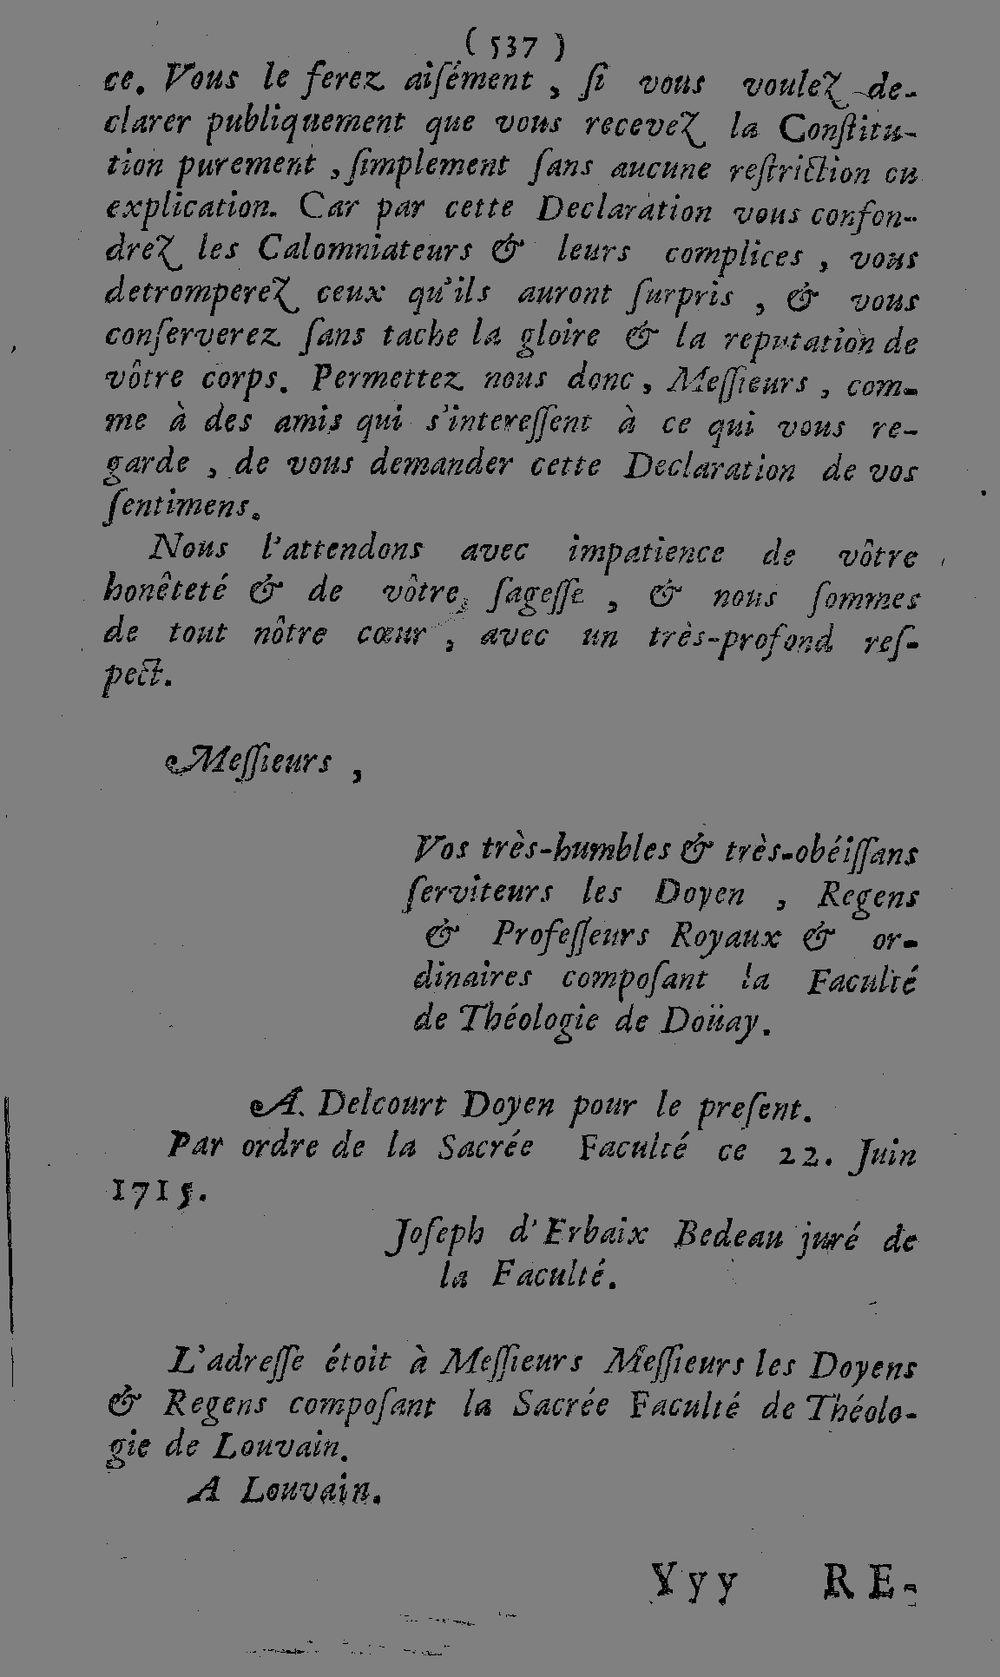 ( 537 )
ce. Vous le ferez aiſément, ſi vous voulez de-
clarer publiquement que vous recevez la Conſtitu-
tion purement, ſimplement ſans aucune reſtriction ou
explication. Car par cette Declaration vous confon-
drez les Calomniateurs & leurs complices, vous
detromperez ceux qu'ils auront ſurpris, & vous
conſerverez ſans tache la gloire & la reputation de
vôtre corps. Permettez nous donc, Meſſieurs, com-
me à des amis qui s'intereſſent à ce qui vous re-
garde, de vous demander cette Declaration de vos
ſentimens.
Nous l'attendons avec impatience de vôtre
honêteté & de vôtre ſageſſe, & nous ſommes
de tout nôtre cœur, avec un très-profond reſ-
pect.
Meſſieurs,
Vos très-humbles & très-obéiſſans
ſerviteurs les Doyen, Regens
& Profeſſeurs Royaux & or-
dinaires compoſant la Faculté
de Théologie de Doüay.
A. Delcourt Doyen pour le preſent.
Par ordre de la Sacrée Faculté ce 22. Juin
1715.
Joſeph d'Erbaix Bedeau juré de
la Faculté.
L'adreſſe étoit à Meſſieurs Meſſieurs les Doyens
& Regens compoſant la Sacrée Faculté de Théolo-
gie de Louvain.
A Louvain.
Yyy RE-